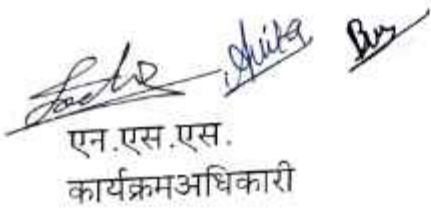 Anita
एन.एस.एस.
कार्यक्रमअधिकारी